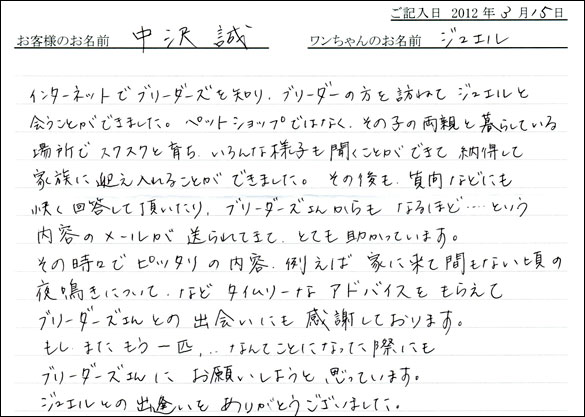 ご記入日 2012年3月15日
お客様のお名前 中沢 誠 ワンちゃんのお名前 ジュエル
インターネットでブリーダーズを知り、ブリーダーの方を訪ねてジュエルと
会うことができました。ペットショップではなく、その子の両親と暮らしている
場所でスクスクと育ち、いろんな様子も聞くことができて納得して
家族に迎え入れることができました。その後も、質問などにも
快く回答して頂いたり、ブリーダーズさんからもなるほど……という
内容のメールが送られてきて、とても助かっています。
その時々でピッタリの内容、例えば家に来て間もない頃の
夜鳴きについて、などタイムリーなアドバイスをもらえて
ブリーダーズさんとの出会いにも感謝しております。
もし、またもう一匹、‥なんてことになった際にも
ブリーダーズさんにお願いしようと思っています。
ジュエルとの出逢いをありがとうございました。